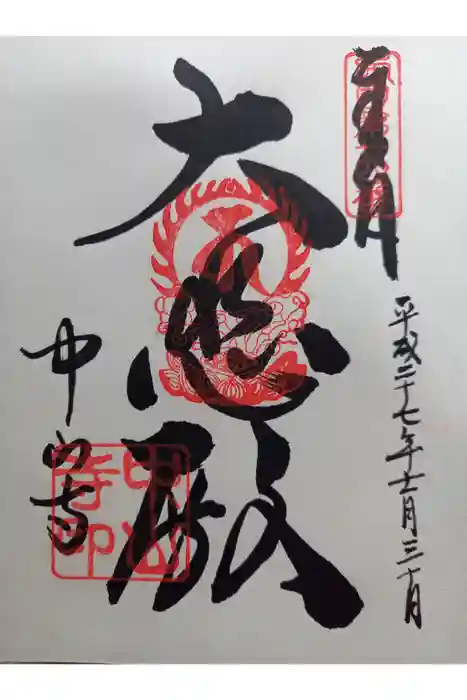 奉拝
大悲殿
平成二十七年十一月三十日
中山寺
中山寺印